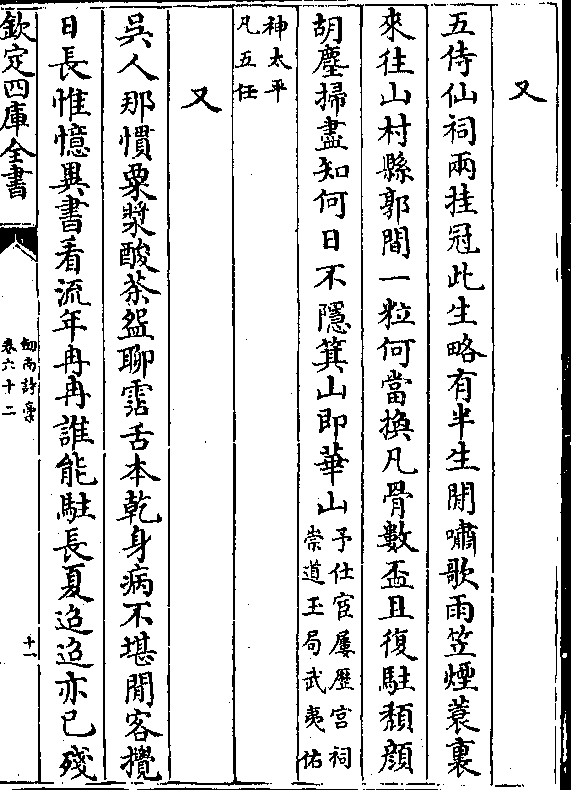 又
五侍仙祠兩挂冠此生略有半生閒嘯歌雨笠煙蓑裏
來往山村縣郭間一粒何當換凡骨數盃且復駐頹顔
胡塵掃盡知何日不隱箕山即華山
予仕宦屢歷宮祠
崇道玉局武夷佑
神太平
凡五任
又
吳人那慣粟漿酸茶盌聊霑舌本乾身病不堪閒客攪
日長惟憶異書看流年冉冉誰能駐長夏迢迢亦已殘
欽定四庫全書
劔南詩藁
卷六十二
十一